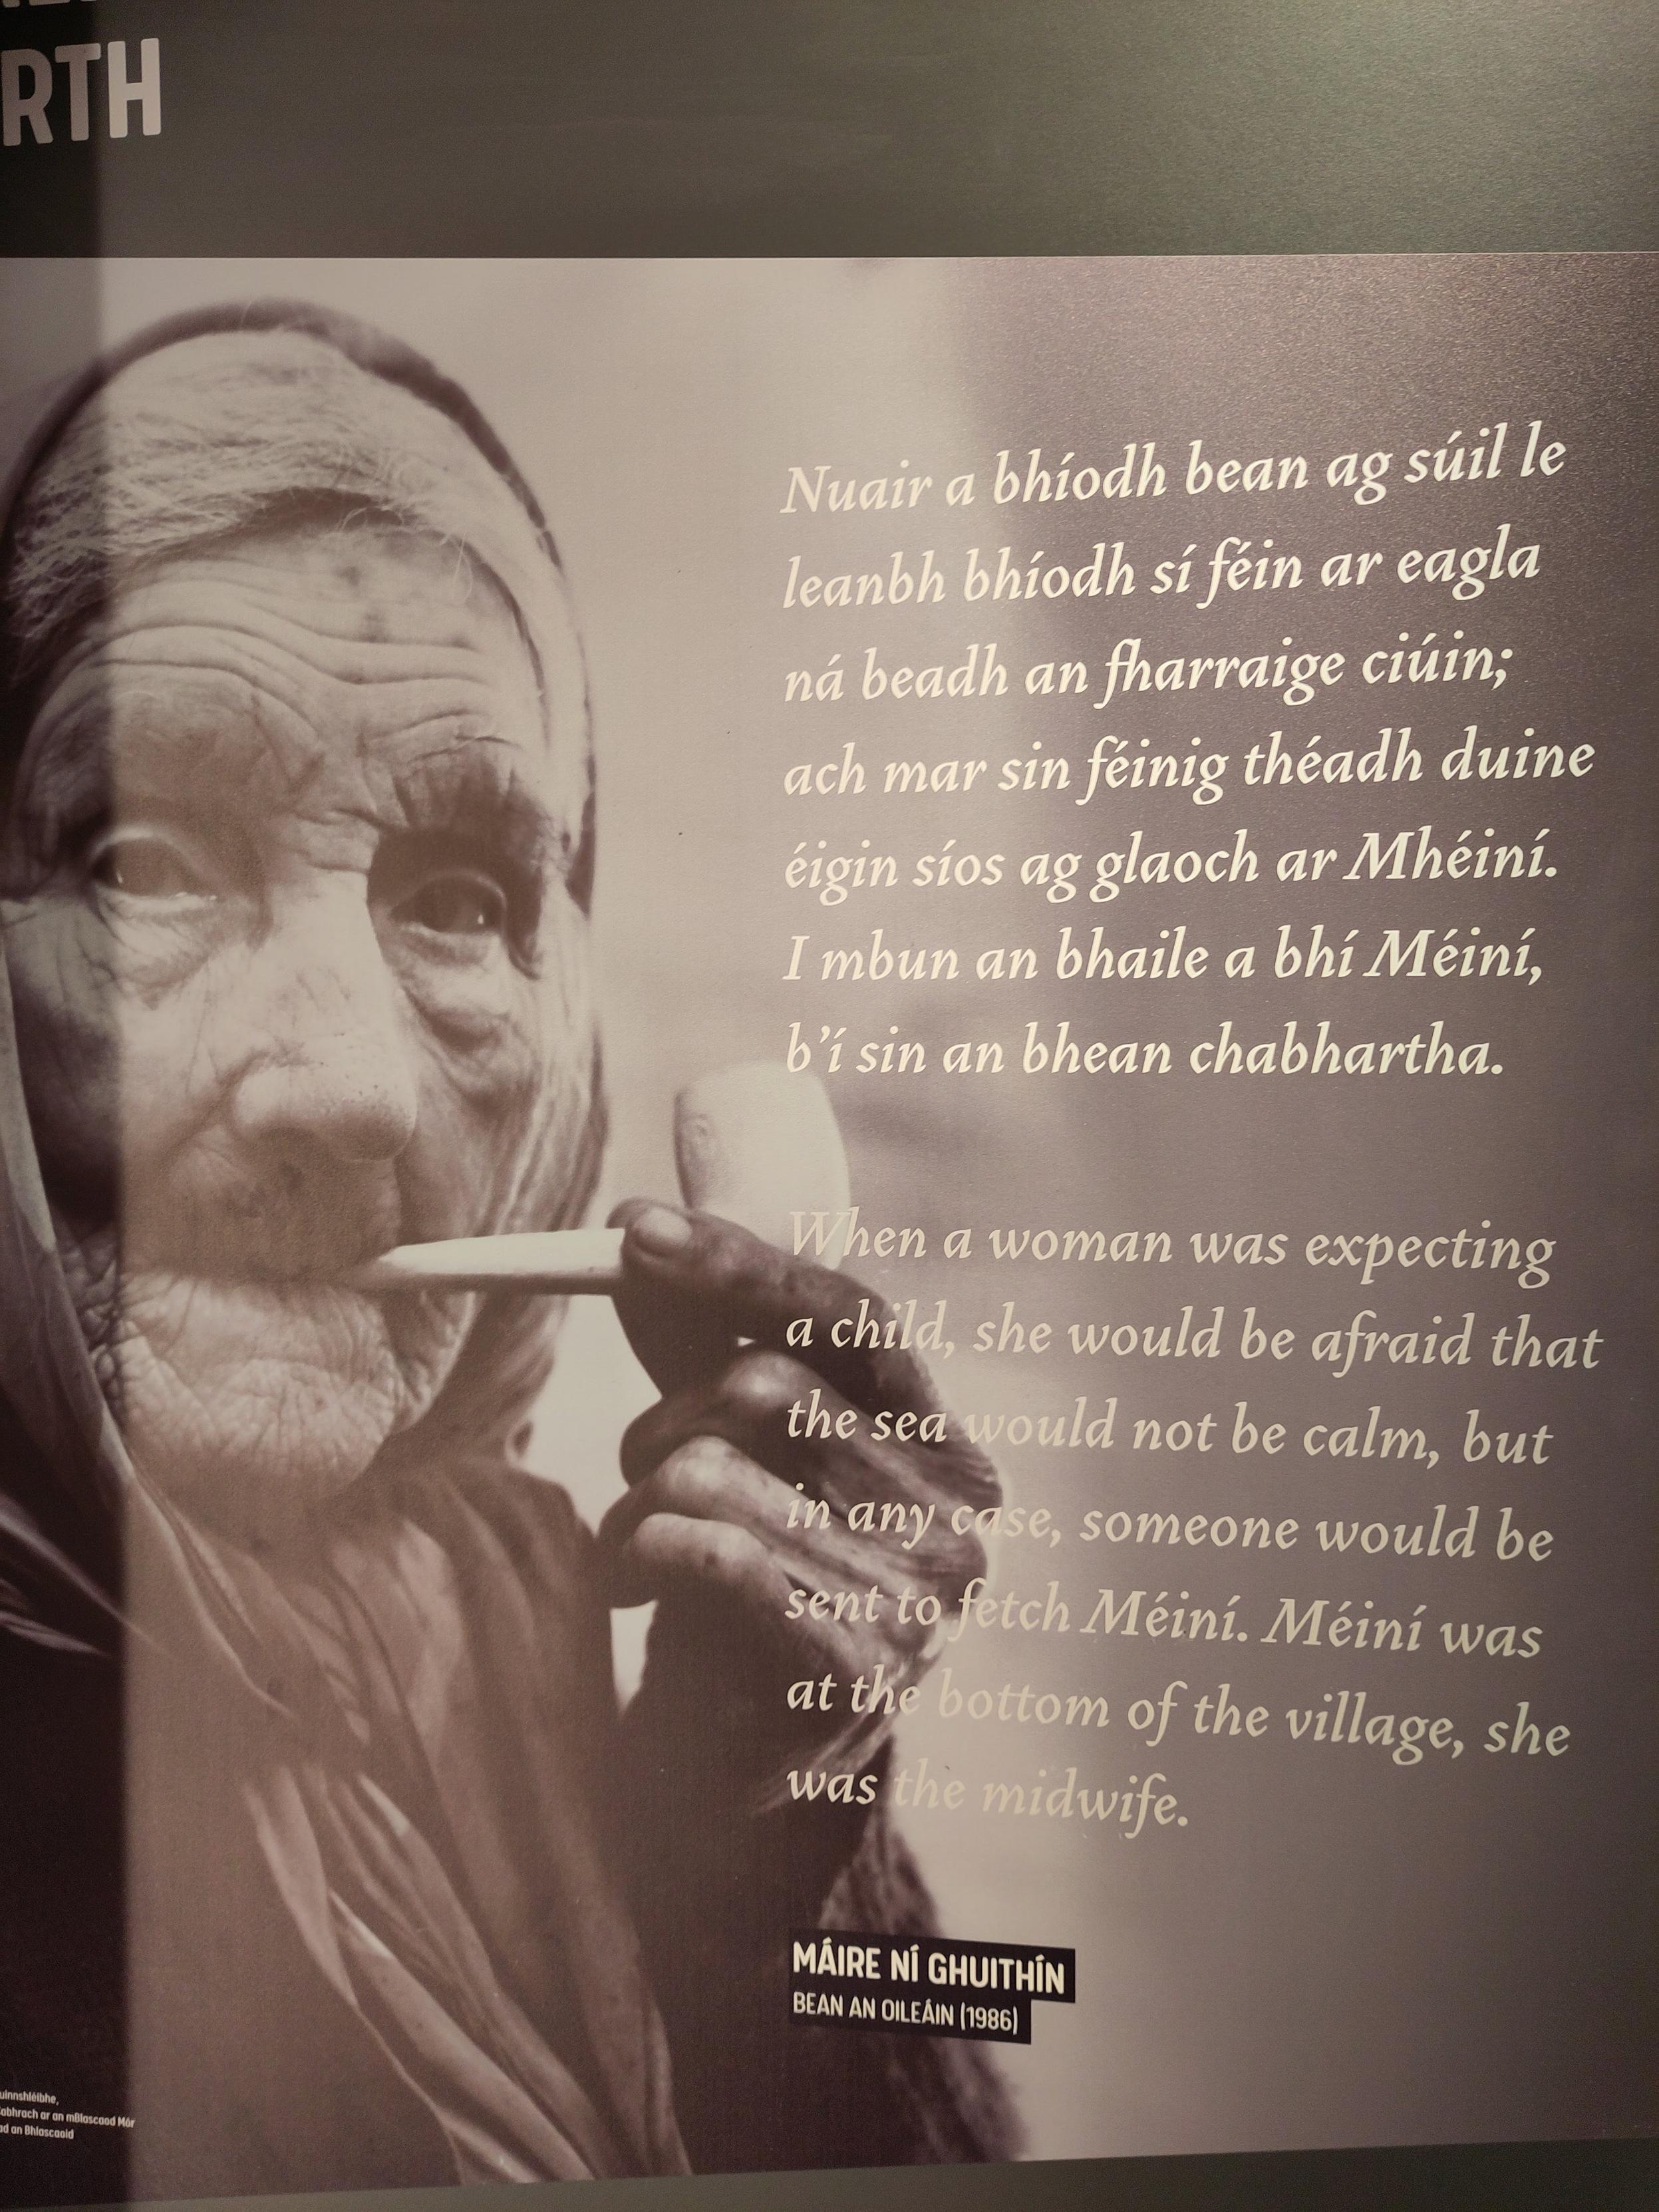 RTH
Nuair a bhíodh bean ag súil le
leanbh bhíodh sí féin ar eagla
ná beadh an fharraige ciúin;
ach mar sin féinig théadh duine
éigin síos ag glaoch ar Mhéiní.
I mbun an bhaile a bhí Méiní,
b’í sin an bhean chabhartha.
When a woman was expecting
a child, she would be afraid that
the sea would not be calm, but
in any case, someone would be
sent to fetch Méiní. Méiní was
at the bottom of the village, she
was the midwife.
MÁIRE NÍ GHUITHÍN
BEAN AN OILEÁIN (1986)
uinnshléibhe,
abhrach ar an mBlascaod Mór
ad an Bhlascaoid